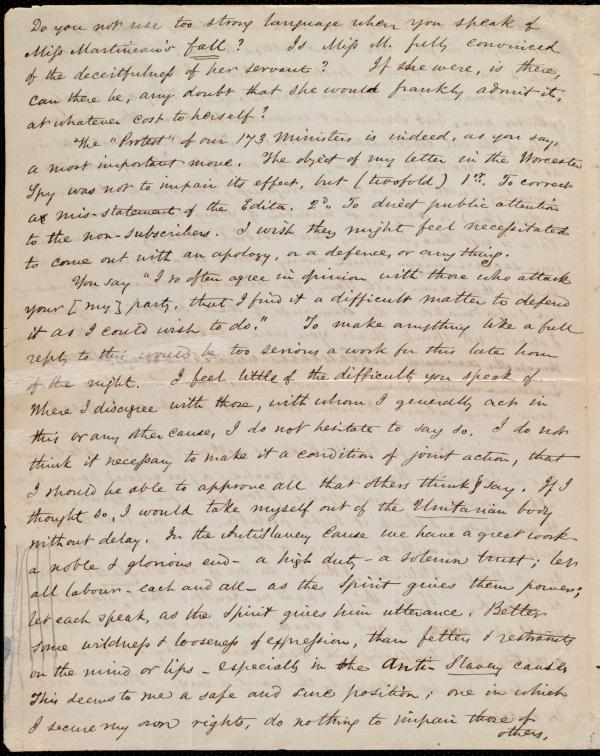 Do you not use too strong language when you speak of
Miss Martineau's fall? Is Miss M. fully convinced
of the deceitfulness of her servant? If she were, is there,
can there be, any doubt that she would frankly admit it,
at whatever cost to herself?
The "Protest" of our 173 Ministers is indeed, as you say,
a most important move. The object of my letter in the Worcester
Spy was not to impair its effect, but (twofold) 1st. To correct
a mis-statement of the Editor. 2d. To direct public attention
to the non-subscribers. I wish they might feel necessitated
to come out with an apology, or a defence, or anything.
You say "I so often agree in opinion with those who attack
your [my] party, that I find it a difficult matter to defend
it as I could wish to do." To make anything like a full
reply to this would be too serious a work for this late hour
of the night. I feel little of the difficulty you speak of.
Where I disagree with those, with whom I generally act in
this or any other cause, I do not hesitate to say so. I do not
think it necessary to make it a condition of joint action, that
I should be able to approve all that others think & say. If I
thought so, I would take myself out of the Unitarian body
without delay. In the AntiSlavery Cause we have a great work -
a noble & glorious end - a high duty - a solemn trust; let
all labour - each and all - as the Spirit gives them power;
let each speak, as the Spirit gives him utterance. Better
some wildness & looseness of expression, than fetters & restraints
on the mind or lips - especially in the Anti-Slavery cause.
This seems to me a safe and sure position; one in which
I secure my own rights, do nothing to impair those of
others.